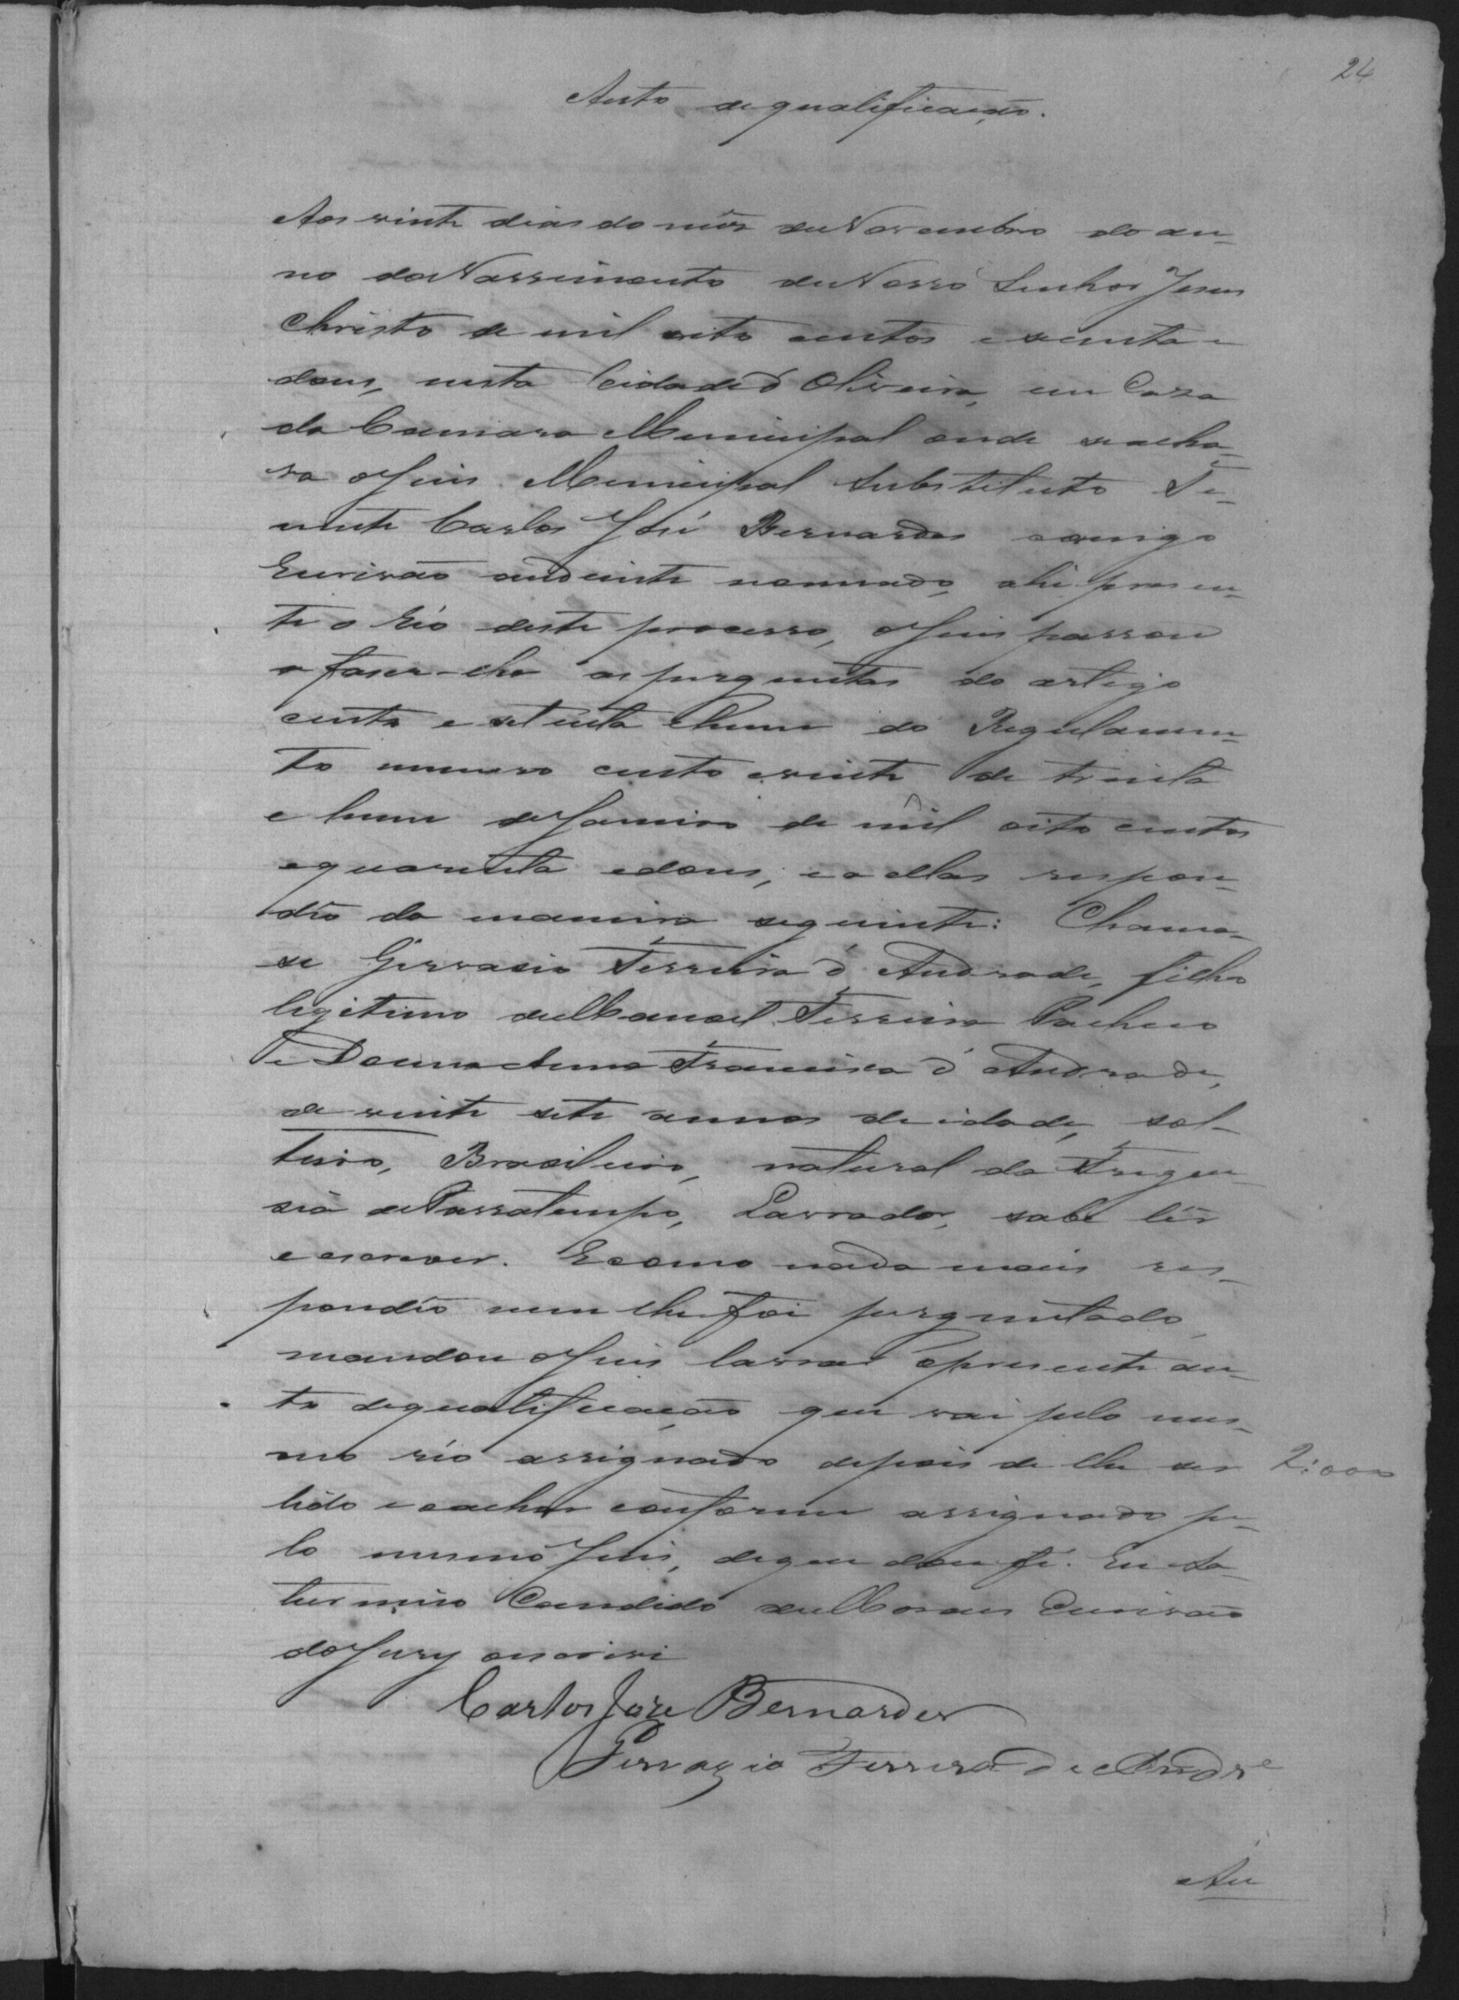 24
Auto de qualificação.
Aos vinte dias do mês de Novembro do an-
no do Nascimento de Nosso Senhor Jesus
Christo de mil oito centos e secenta e
dous, nesta Cidade d' Oliveira, em Caza
da Camara Municipal onde se acha-
va o Juis Municipal Substituto Te-
nente Carlos José Bernardes comigo
Escrivão andiante nomeado, ahi presen-
te o Réo deste processo, o Juis passou
a faser-lhe as perguntas do artigo
cento e setenta e hum do Regulamen-
to numero cento e vinte de trinta
e hum de Janeiro de mil oito centos
e quarenta e dous; e a ellas respon-
dêo da maneira seguinte: Chama-
se Gervasio Ferreira d' Andrade, filho
legitimo de Manoel Ferreira Pacheco
e Donna Anna Francisca d' Andrade,
de vinte sete annos de idade, sol-
teiro, Brasileiro, natural da Fregue-
sia de Passatempo, Lavrador, sabe lêr
e escrever. E como nada mais res-
pondêo nem lhe foi perguntado,
mandou o Juis lavrar o presente au-
to de qualificação que vai pelo mes-
mo réo assignado depois de lhe ser 2:000
lido e o achar conforme assignado pe-
lo mesmo Juis, de que dou fé. Eu Sa-
turnino Candido de Moraes Escrivão
do Jury escrivi
Carlos José Bernardes
Gervazio Ferrera de Andre
Au